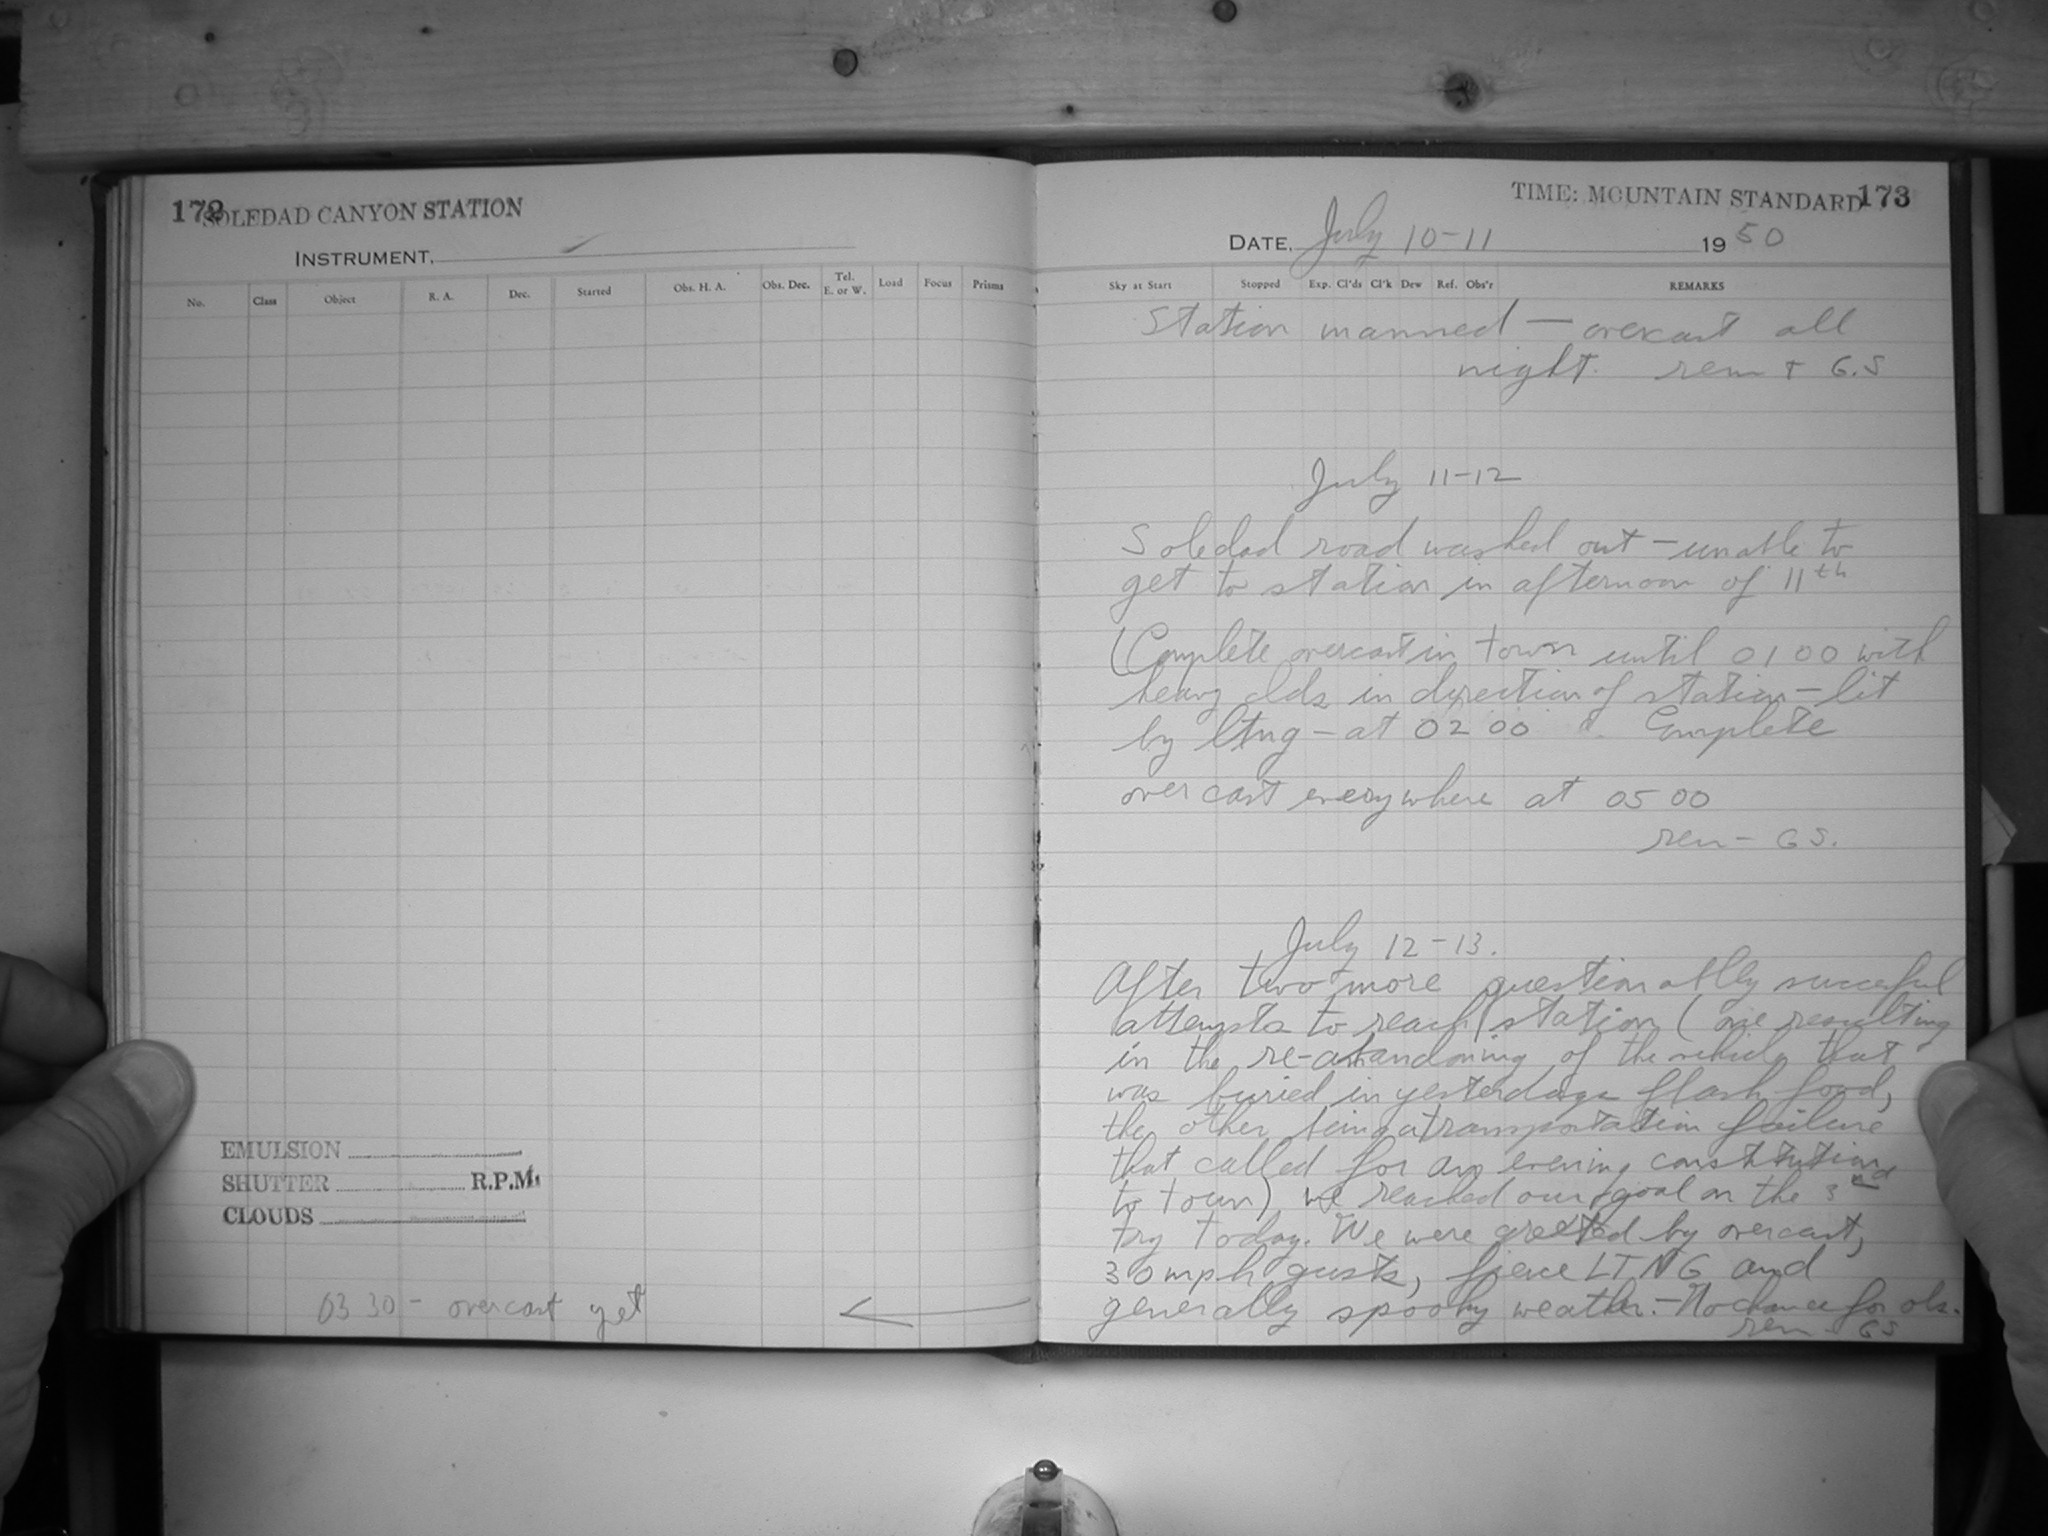 172
SOLEDAD CANYON STATION
INSTRUMENT.
No. Class Object R. A. Dec. Started Obs. H. A. Obs. Dec. Tel. E. or W. Load Focus Prisms
EMULSION
SHUTTER R.P.M.
CLOUDS
03 30 - overcast yet
TIME: MOUNTAIN STANDARD 173
DATE. July 10-11 1950
Sky at Start Stopped Exp. Cl'ds Cl'k Dew Ref. Obs'r REMARKS
Station manned — overcast all
night. rem + G.S
July 11-12
Soledad road washed out - unable to
get to station in afternoon of 11th
(Complete overcast in town until 01 00 with
heavy clds in direction of station - lit
by ltng - at 02 00 Complete
overcast everywhere at 05 00
rem - GS.
July 12-13.
After two more questionably succesful
attempts to reach station (one resulting
in the re-abandoning of the vehicle that
was buried in yesterdays flash flood,
the other being a transportation failure
that called for an evening constitution
to town) we reached our goal on the 3rd
try today. We were greeted by overcast,
30 mph gusts, fierce LTNG and
generally spooky weather. - No chance for obs.
rem - GS